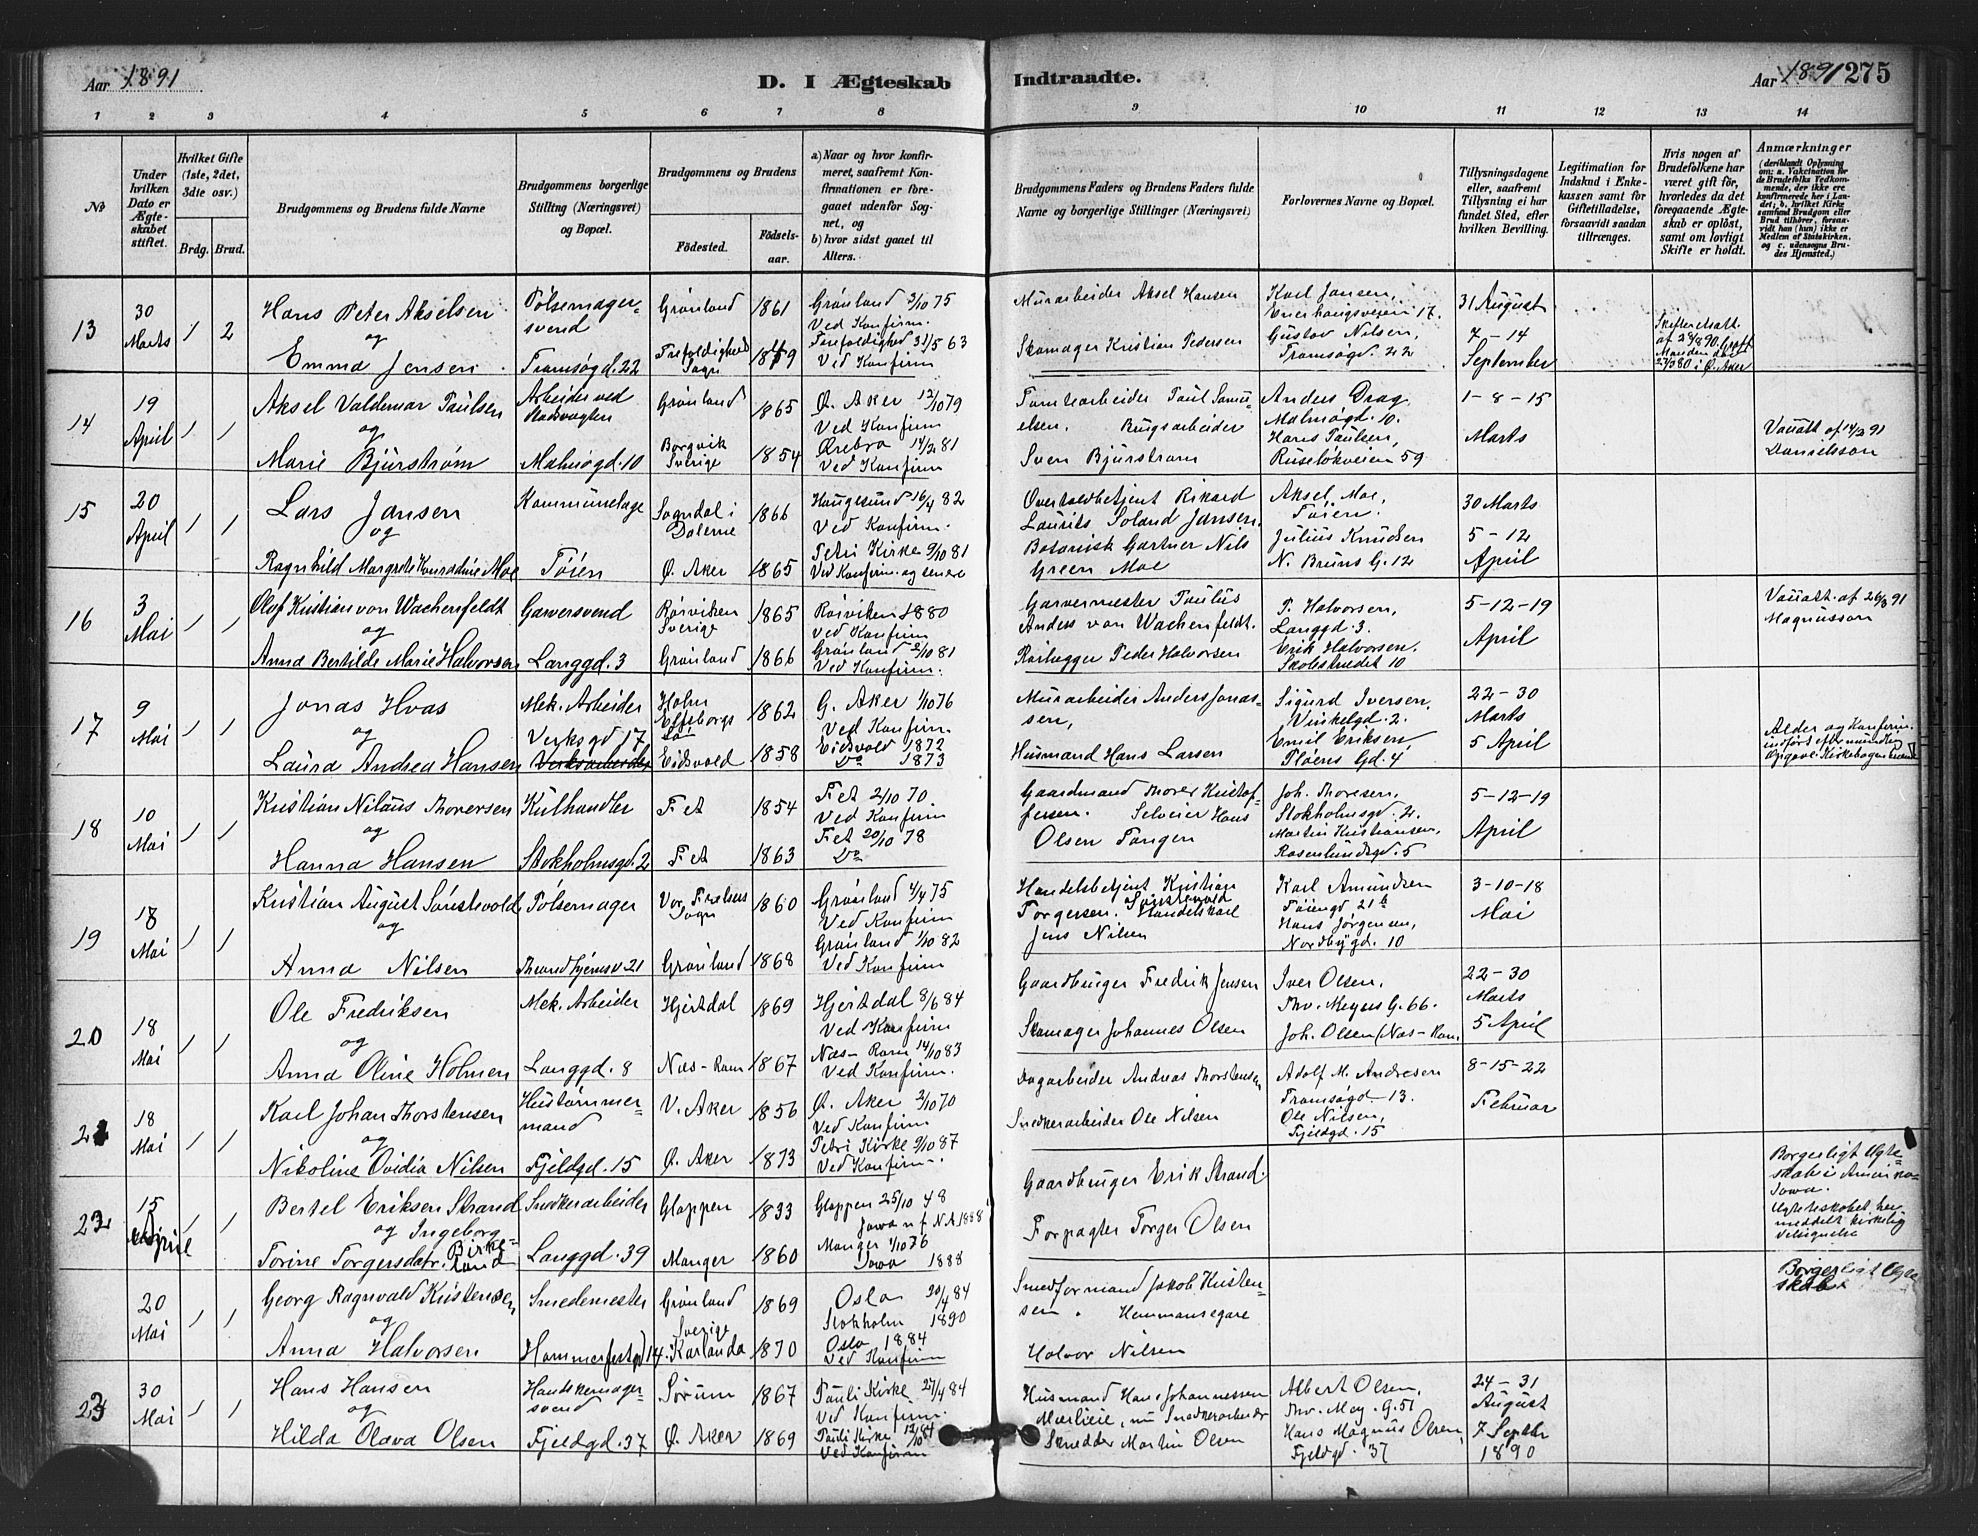 Aar 1891
D. I Ægteskab Indtraadte.
Aar 1891 275
1 2 3 4 5 6 7 8 9 10 11 12 13 14
№
Under hvilken Dato er Ægteskabet stiftet.
Hvilket Gifte (1ste, 2det, 3die osv.)
Brdg. Brud.
Brudgommens og Brudens fulde Navne
Brudgommens borgerlige Stilling (Næringsvei) og Bopæl.
Brudgommens og Brudens
Födested.
Födselsaar.
a) Naar og hvor konfirmeret, saafremt Konfirmationen er foregaaet udenfor Sognet, og
b) hvor sidst gaaet til Alters.
Brudgommens Faders og Brudens Faders fulde Navne og borgerlige Stillinger (Næringsvei)
Forlovernes Navne og Bopæl.
Tillysningsdagene eller, saafremt Tillysning ei har fundet Sted, efter hvilken Bevilling.
Legitimation for Indskud i Enkekassen samt for Giftetilladelse, forsaavidt saadan tiltrænges.
Hvis nogen af Brudefolkene har været gift før, hvorledes da det foregaaende Ægteskab er oplöst, samt om lovligt Skifte er holdt.
Anmærkninger
13 30 Marts 1 2
Hans Peter Akselsen
og
Emma Jensen
Pølsemagersvend
Tromsøgd. 22
Grønland 1861
Trefoldigheds Sogn
Grønland 3/10 75
Ved Konfirm.
Trefoldighed 31/5 63
Ved Konfirm
Murarbeider Aksel Hansen
Skomager Kristian Pedersen
Karl Jansen,
Enerhaugsveien 17.
Gustav Nilsen,
Tromsøgd. 22
31 August
7-14
September
14 19 April 1 1
Aksel Valdemar Paulsen
og
Marie Bjurstrøm
Arbeider ved
Malmøgd. 10
Grønland 1865
Borgvik Sverige 1854
Ø. Aker 12/10 79
Ved Konfirm
Ørebro 14/2 81
Ved Konfirm
Tomtearbeider Paul Samuelsen. Brugsarbeider
Sven Bjurstrøm
Anders Drag,
Malmøgd. 10.
Hans Paulsen,
Ruseløkveien 59
1-8-15
Marts
Vauatt. af 14/3 91
Danielsson
15 20 April 1 1
Lars Jansen
og
Ragnhild Margrete Konradine Moe
Kommunelæge
Tøien
Sogndal i Dalerne 1866
Ø. Aker 1865
Haugesund 16/4 82
Ved Konfirm.
Petri Kirke 9/10 81
Ved Konfirm. og senere
Overtoldbetjent Rikard
Laurits Soland Jansen,
Botanisk Gartner Nils
Green Moe
Aksel Moe,
Tøien.
Julius Knudsen
N. Bruns G. 12
30 Marts
5-12
April
16 3 Mai 1 1
Olof Kristian von Wachenfeldt
og
Anna Bertilde Marie Halvorsen
Garversvend
Langgd. 3
Rørviken Sverige 1865
Grønland 1866
Rørviken 1880
Ved Konfirm
Grønland 2/10 81
Ved Konfirm.
Garvermester Paulus
Anders von Wachenfeldt.
Rørlægger Peder Halvorsen
P. Halvorsen,
Langgd. 3.
Erik Halvorsen.
Skolestrædet 10
5-12-19
April
Vauatt. af 26/3 91
Magnusson
17 9 Mai 1 1
Jonas Hvas
og
Laura Andrea Hansen
Mek. Arbeider
Verksgd 17
Verksarbeider
Elfsborgs Län 1862
Eidsvold 1858
G. Aker 1/10 76
Ved Konfirm.
Eidsvold 1872
Do 1873
Murarbeider Anders Jonassen,
Husmand Hans Larsen
Sigurd Iversen,
Vinkelgd. 2.
Emil Eriksen
Pløens Gd. 4
22-30
Marts
5 April
Alder og Konfirm.
indført efter mundtlig
Opgave.
18 10 Mai 1 1
Kristian Nilaus Thoresen
og
Hanna Hansen
Kulhandler
Stokholmsgd. 2
Fet 1854
Fet 1863
Fet 2/10 70.
Ved Konfirm
Fet 20/10 78
Do
Gaardmand Thorer Kristoffersen. Selveier Hans
Olsen Tangen
Joh. Thoresen,
Stokholmsgd. 2.
Martin Kristiansen,
Rosenlundsgd. 5
5-12-19
April
19 18 Mai 1 1
Kristian August Sønstevold
og
Anna Nilsen
Pølsemager
Throndhjemsv 21
Vor Frelsers Sogn 1860
Grønland 1868
Grønland 4/4 75
Ved Konfirm
Grønland 1/10 82
Ved Konfirm
Handelsbetjent Kristian
Torgersen Sønstevold. Handelskarl
Jens Nilsen
Karl Amundsen
Tøiengd. 21 b
Hans Jørgensen,
Nordbygd. 10
3-10-18
Mai
20 18 Mai 1 1
Ole Fredriksen
og
Anna Oline Holmen
Mek. Arbeider
Langgd. 8
Hjertdal 1869
Næs-Rom 1867
Hjertdal 8/6 84
Ved Konfirm
Næs-Rom 14/10 83
Ved Konfirm.
Gaardbruger Fredrik Jensen
Skomager Johannes Olsen
Iver Olsen,
Thv. Meyers G. 66.
Joh. Olsen (Næs-Rom.
22-30
Marts
5 April
21 18 Mai 1 1
Karl Johan Thorstensen
og
Nikoline Ovidia Nilsen
Hustømmermand
Fjeldgd. 15
V. Aker 1856
Ø. Aker 1873
Ø. Aker 2/10 70
Ved Konfirm
Petri Kirke 9/10 87
Ved Konfirm.
Dagarbeider Andreas Thorstensen
Snedkerarbeider Ole Nilsen
Adolf M. Andresen
Tromsøgd. 13.
Ole Nilsen,
Fjeldgd. 15
8-15-22
Februar
15 April 1 1
Bertel Eriksen Strand
og Ingeborg
Torine Torgersdatr. Birkeland
Snedkerarbeider
Langgd. 39
Gloppen 1833
Manger 1860
Gloppen 25/10 48
Jowa N.A 1888
Manger 1/10 76
Jowa 1888
Gaardbruger Erik Strand.
Forpagter Torger Olsen
Borgerligt Ægteskab i Amerika
Jowa.
Ægteskabet her
meddelt kirkelig
Velsignelse
20 Mai 1 1
Georg Ragnvald Kristensen
og
Anna Halvorsen
Smedemester
Hammerfestgd 14.
Grønland 1869
Sverige Karlanda 1870
Oslo 20/4 84
Stokholm 1890
Oslo 1884
Ved Konfirm
Smedformand Jakob Kristensen. Hemmansegare
Halvor Nilsen
Borgerligt Ægteskab
23 30 Mai 1 1
Hans Hansen
og
Hilda Olava Olsen
Handskemagersvend
Fjeldgd. 37
Sørum 1867
Ø. Aker 1869
Pauli Kirke 27/4 84
Ved Konfirm.
Pauli Kirke 12/10 84
Ved Konfirm
Husmand Hans Johannessen
Mærlieie, nu Snedkerarbeider
Skrædder Martin Olsen
Albert Olsen,
Thv. Mey. G. 51
Hans Magnus Olsen,
Fjeldgd. 37
24-31
August
7 Septbr
1890